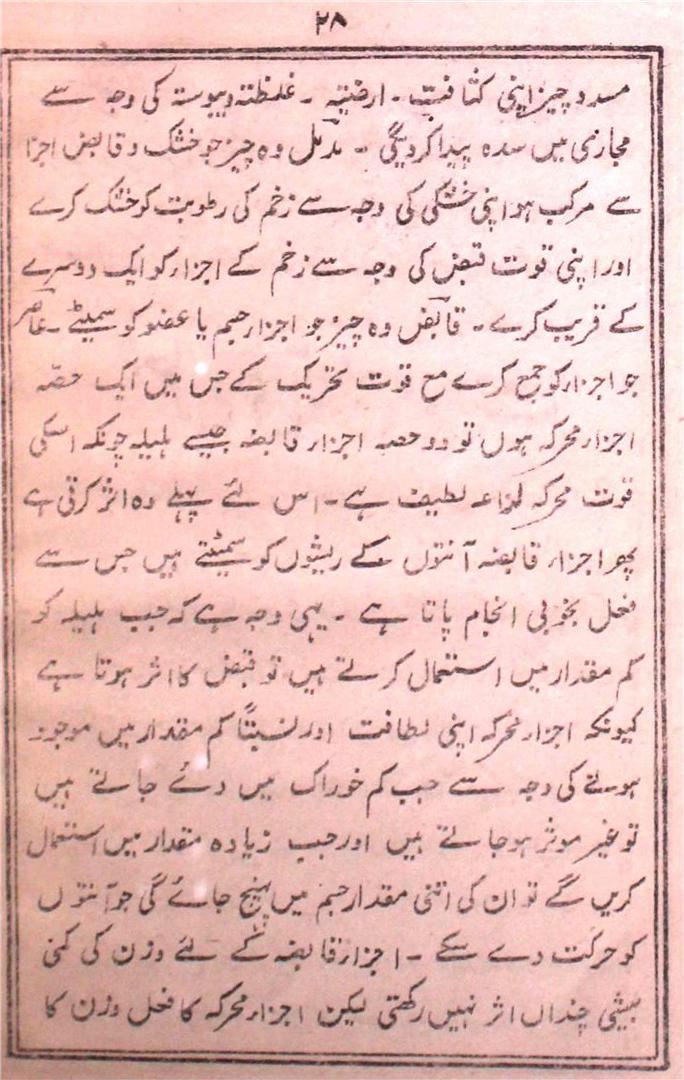 ۲۸
مسدد چیز اپنی کثافت۔ ارضیتہ ۔ غلظتہ ویبوستہ کی وجہ سے
مجاری میں سدہ پیدا کردیگی ۔ مدمل وہ چیز جو خشک و قابض اجزا
سے مرکب ہو اپنی خشکی کی وجہ سے زخم کی رطوبت کو خشک کرے
اور اپنی قوت قبض کی وجہ سے زخم کے اجزار کو ایک دوسرے
کے قریب کرے۔ قابض وہ چیز جو اجزار جسم یا عضو کو سمیٹے۔ عاصر
جو اجزار کو جمع کرے مع قوت تحریک کے جس میں ایک حصّہ
اجزار محرکہ ہوں تو دو حصہ اجزار قابضہ جیسے ہلیلہ چونکہ اسکی
قوت محرکہ لذاعہ لطیف ہے۔ اس لئے پہلے وہ اثر کرتی ہے
پھر اجزار قابضہ آنتوں کے ریشوں کو سمیٹتے ہیں جس سے
فعل بخوبی انجام پاتا ہے ۔ یہی وجہ ہے کہ جب ہلیلہ کو
کم مقدار میں استعمال کرتے ہیں تو قبض کا اثر ہوتا ہے
کیونکہ اجزار محرکہ اپنی لطافت اور نسبتاً کم مقدار میں موجود
ہونے کی وجہ سے جب کم خوراک میں دئے جاتے ہیں
تو غیر موثر ہوجاتے ہیں اور جب زیادہ مقدار میں استعمال
کریں گے تو ان کی اتنی مقدار جسم میں پہنچ جائے گی جو آنتوں
کو حرکت دے سکے ۔ اجزار قابضہ کے لئے وزن کی کمی
بیشی چنداں اثر نہیں رکھتی لیکن اجزار محرکہ کا فعل وزن کا